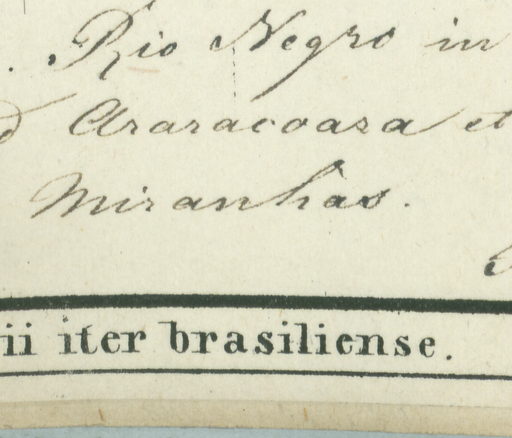 . Rio Negro in
d Araracoara et
Miranhas.
ii iter brasiliense.